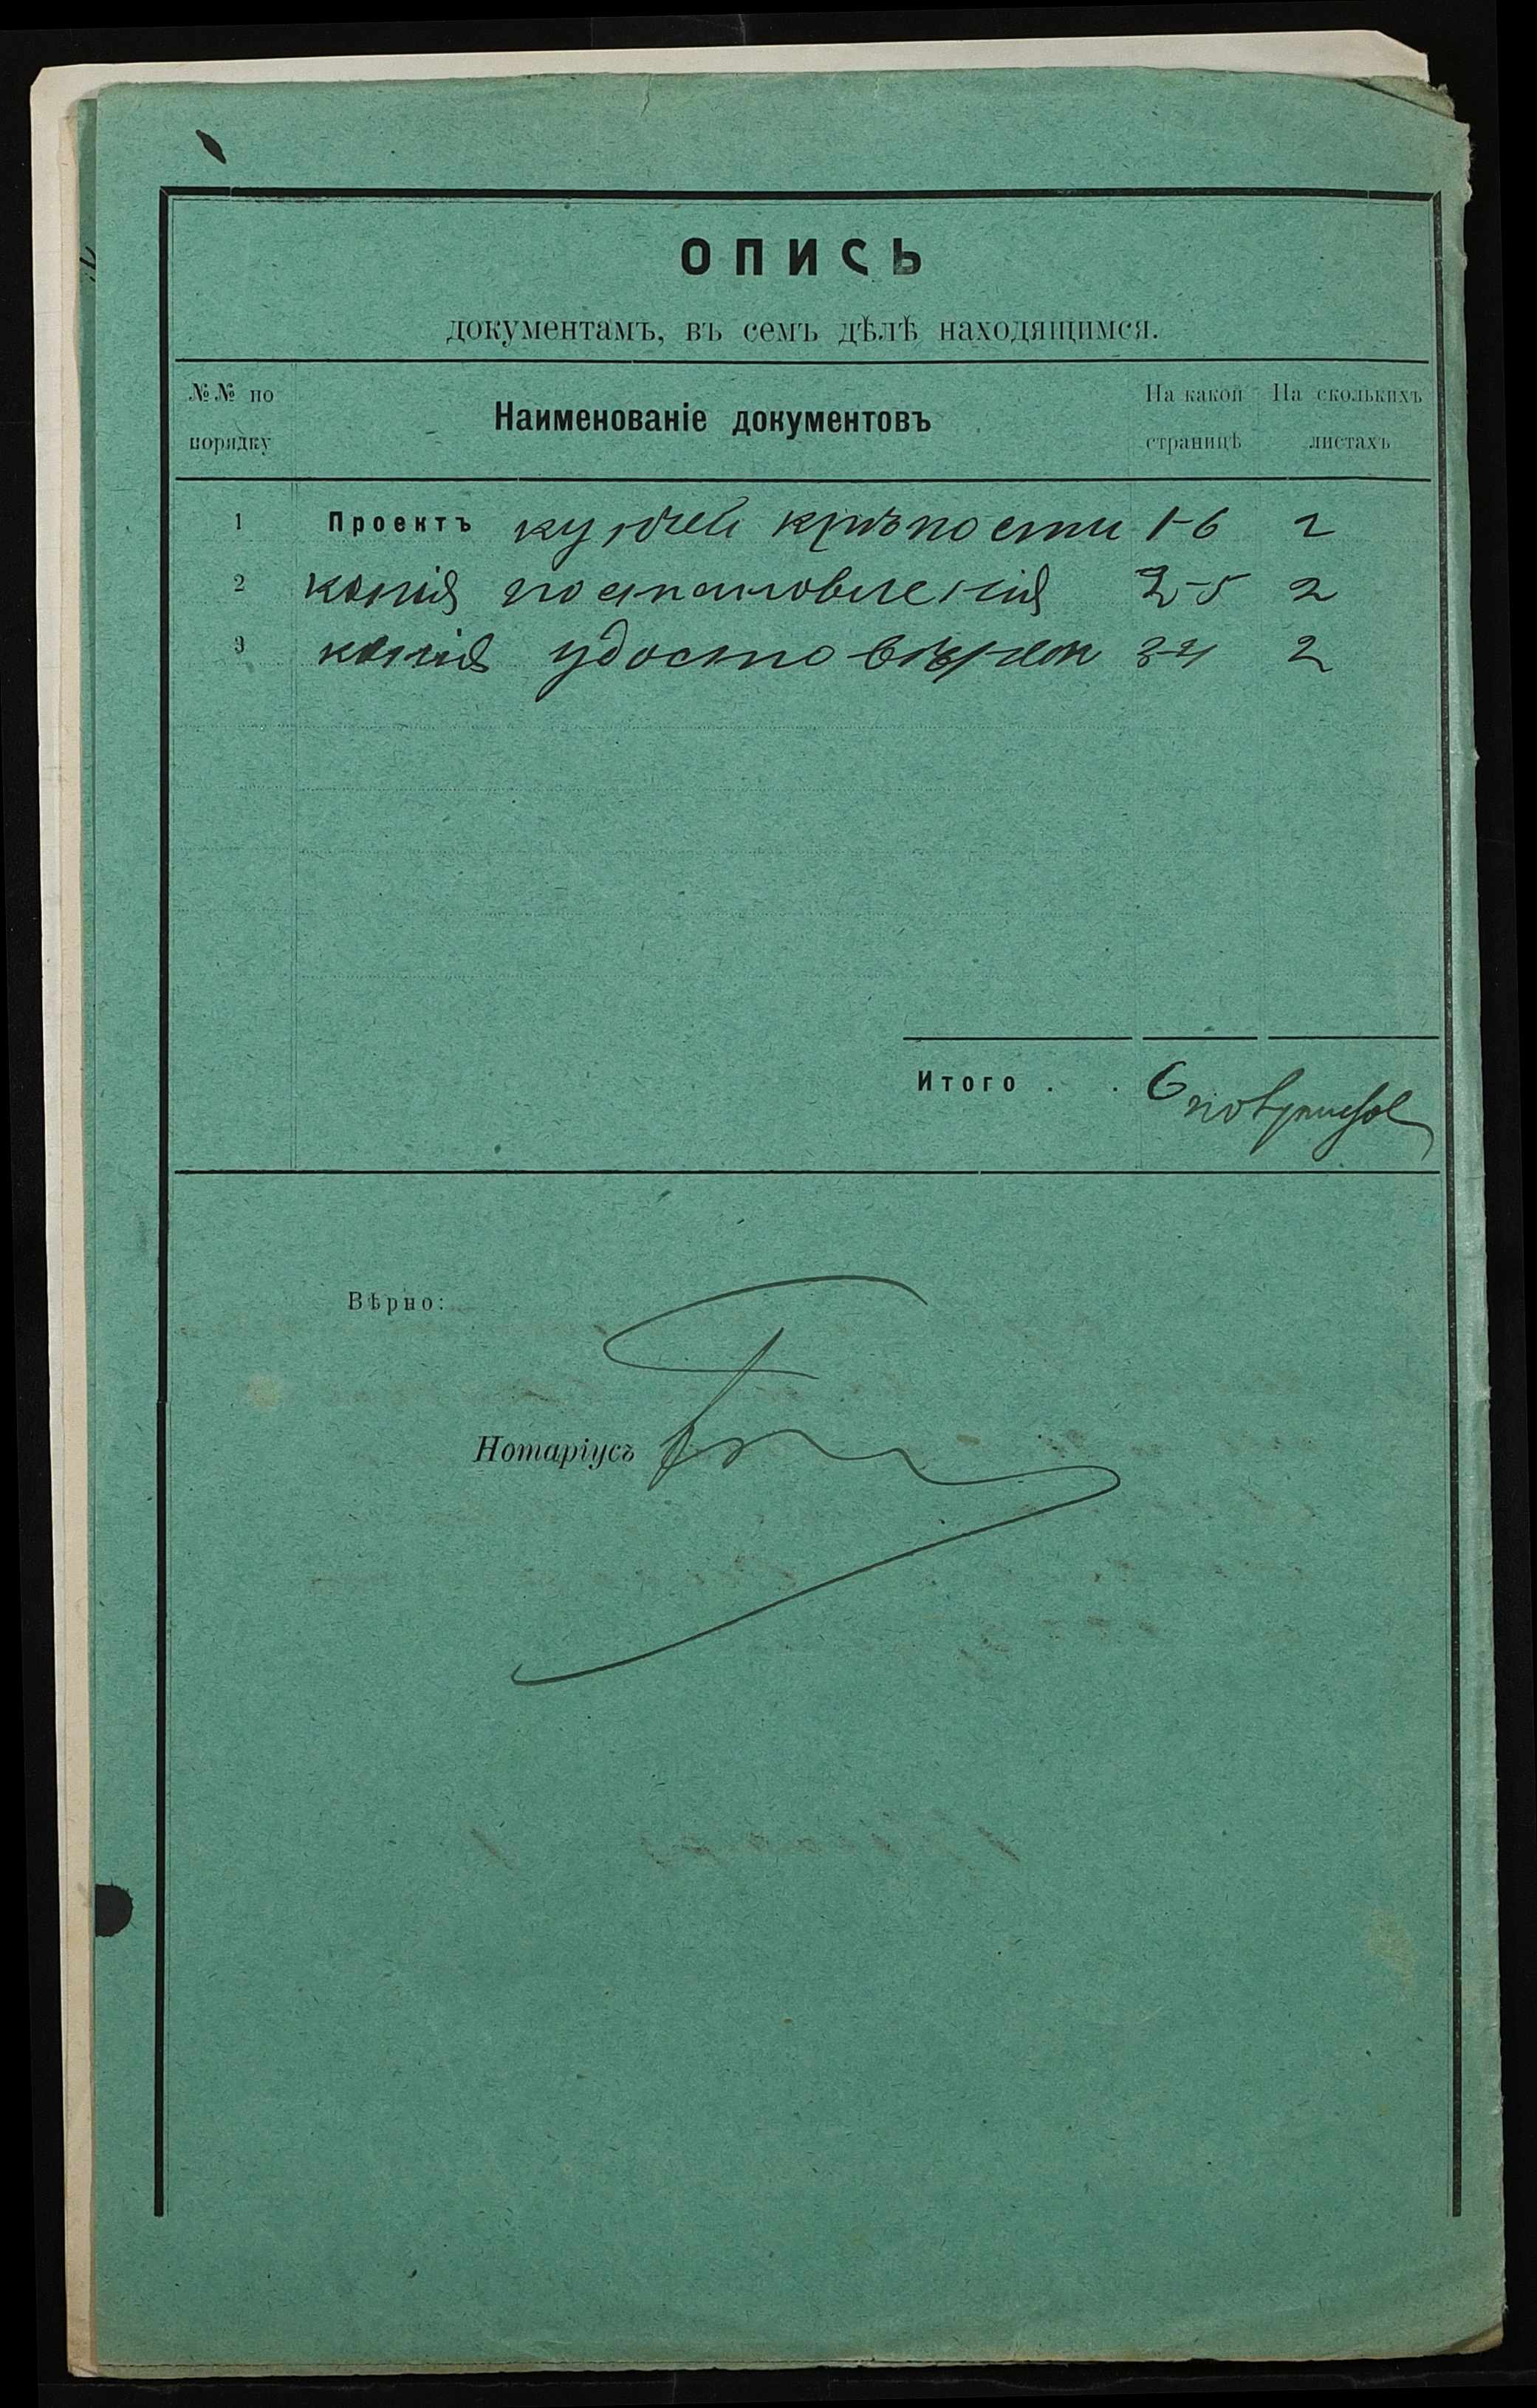 ОПИСЬ
документамъ, въ семъ дѣлѣ находящимся.
№№ по порядку
Наименованіе документовъ
На какой страницѣ
На сколькихъ листахъ
1 Проектъ купчей крѣпости 1-6 2
2 копія постановленія 2-5 2
3 копія удостовѣрен 3-4 2
Итого . . 6
Вѣрно:
Нотаріусъ